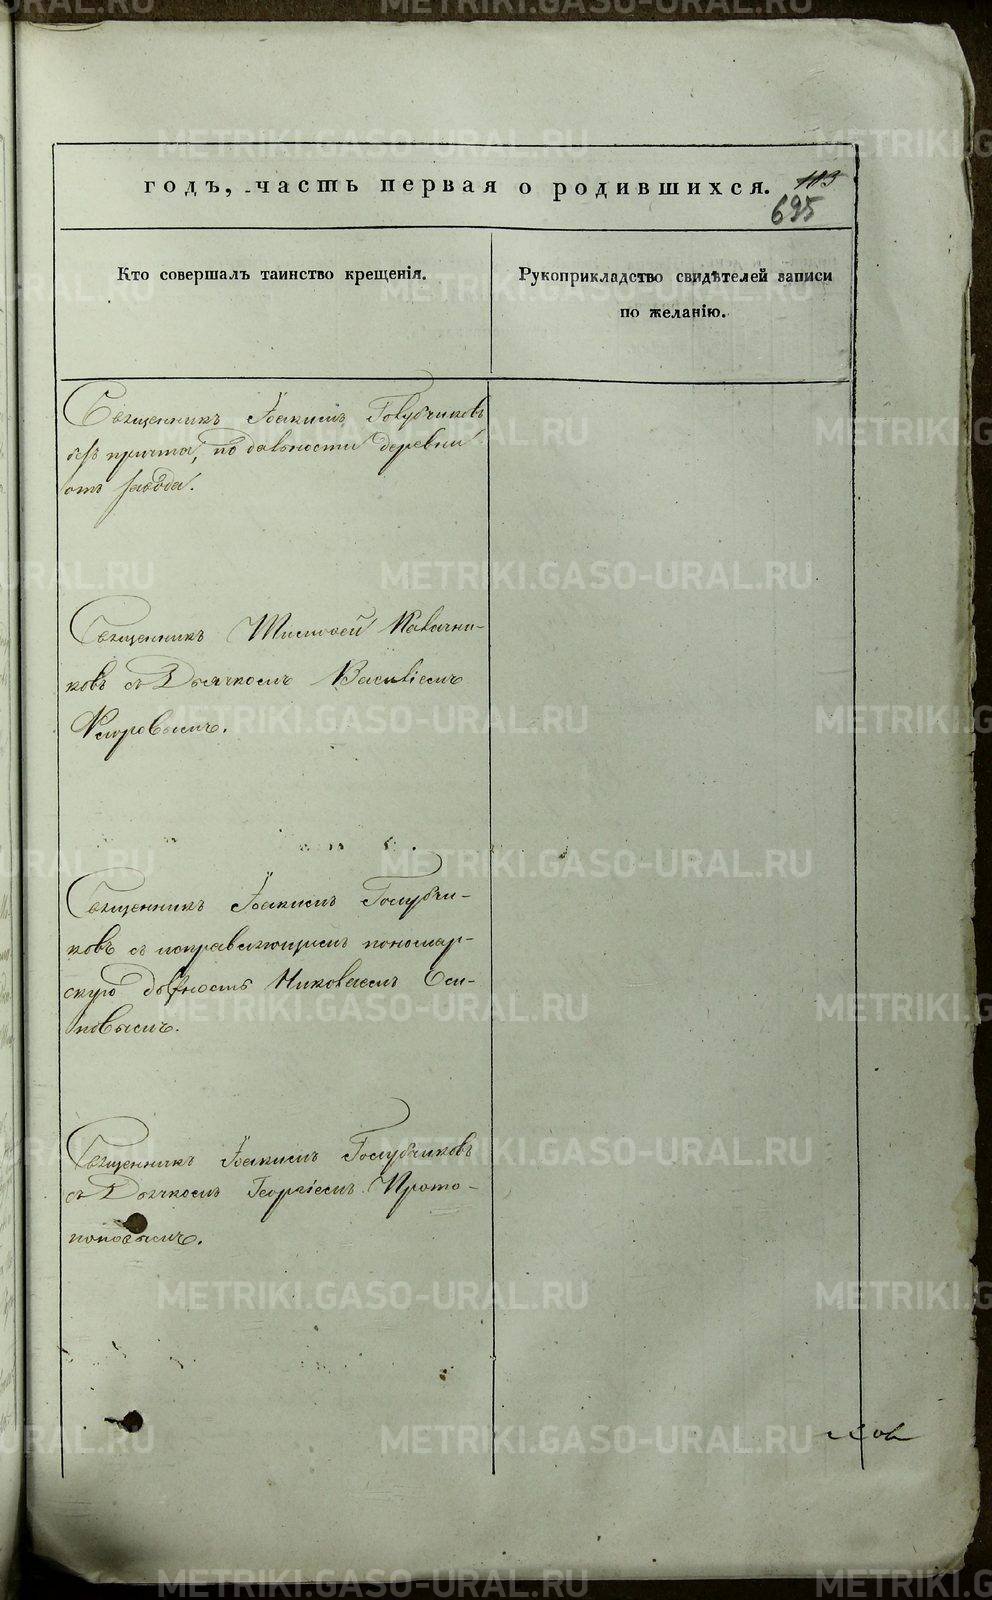 годъ, часть первая о родившихся.
113
695
Кто совершалъ таинство крещенія.
Рукоприкладство свидѣтелей записи
по желанію.
Священникъ Іоакимъ Голубчиковъ
безъ причта, по дальности деревни
отъ завода.
Священникъ Тимоѳей Калачни-
ковъ съ Дьячкомъ Василіемъ
Священникъ Іоакимъ Голубчи-
ковъ съ исправляющимъ пономар-
скую должность Николаемъ Оси-
повымъ.
Священникъ Іоакимъ Голубчиковъ
съ Дьячкомъ Георгіемъ Прото-
поповымъ.
METRIKI.GASO-URAL.RU